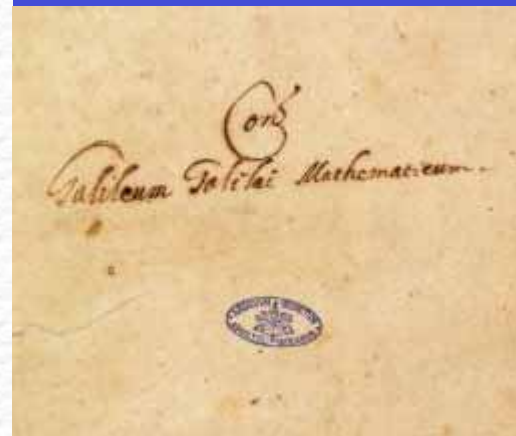 Con͂
Galileum Galilei Mathematicum.